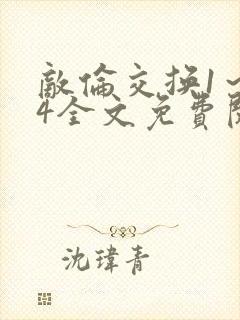 敵倫交換1～
4全文免費閱
沈瑋青